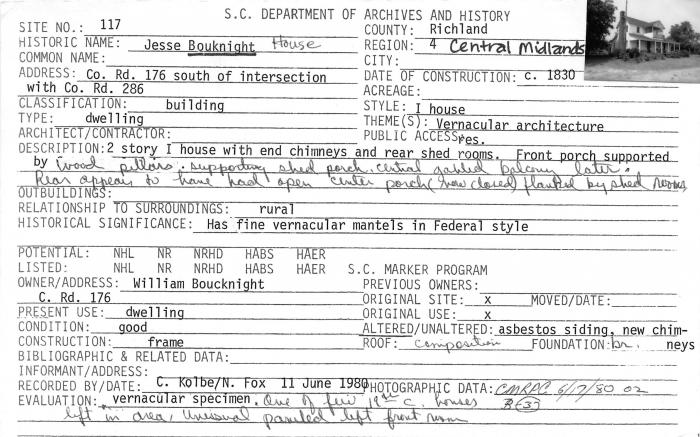 S.C. DEPARTMENT OF ARCHIVES AND HISTORY
SITE NO.: 117 COUNTY: Richland
HISTORIC NAME: Jesse Bouknight House REGION: 4 Central Midlands
COMMON NAME: CITY:
ADDRESS: Co. Rd. 176 south of intersection DATE OF CONSTRUCTION: c. 1830
with Co. Rd. 286 ACREAGE:
CLASSIFICATION: building STYLE: I house
TYPE: dwelling THEME(S): Vernacular architecture
ARCHITECT/CONTRACTOR: PUBLIC ACCESS: res.
DESCRIPTION: 2 story I house with end chimneys and rear shed rooms. Front porch supported
by wood pillars, supporting shed porch, central gabled balcony later.
Rear appears to have had open center porch (now closed) flanked by shed rooms
OUTBUILDINGS:
RELATIONSHIP TO SURROUNDINGS: rural
HISTORICAL SIGNIFICANCE: Has fine vernacular mantels in Federal style
POTENTIAL: NHL NR NRHD HABS HAER
LISTED: NHL NR NRHD HABS HAER S.C. MARKER PROGRAM
OWNER/ADDRESS: William Boucknight PREVIOUS OWNERS:
C. Rd. 176 ORIGINAL SITE: x MOVED/DATE:
PRESENT USE: dwelling ORIGINAL USE: x
CONDITION: good ALTERED/UNALTERED: asbestos siding, new chim-
CONSTRUCTION: frame ROOF: composition FOUNDATION: br. neys
BIBLIOGRAPHIC & RELATED DATA:
INFORMANT/ADDRESS:
RECORDED BY/DATE: C. Kolbe/N. Fox 11 June 1980 PHOTOGRAPHIC DATA: CMRPC 6/17/80 02
EVALUATION: vernacular specimen. One of few 19th c. houses R-33
left in area, Unusual paneled left front room